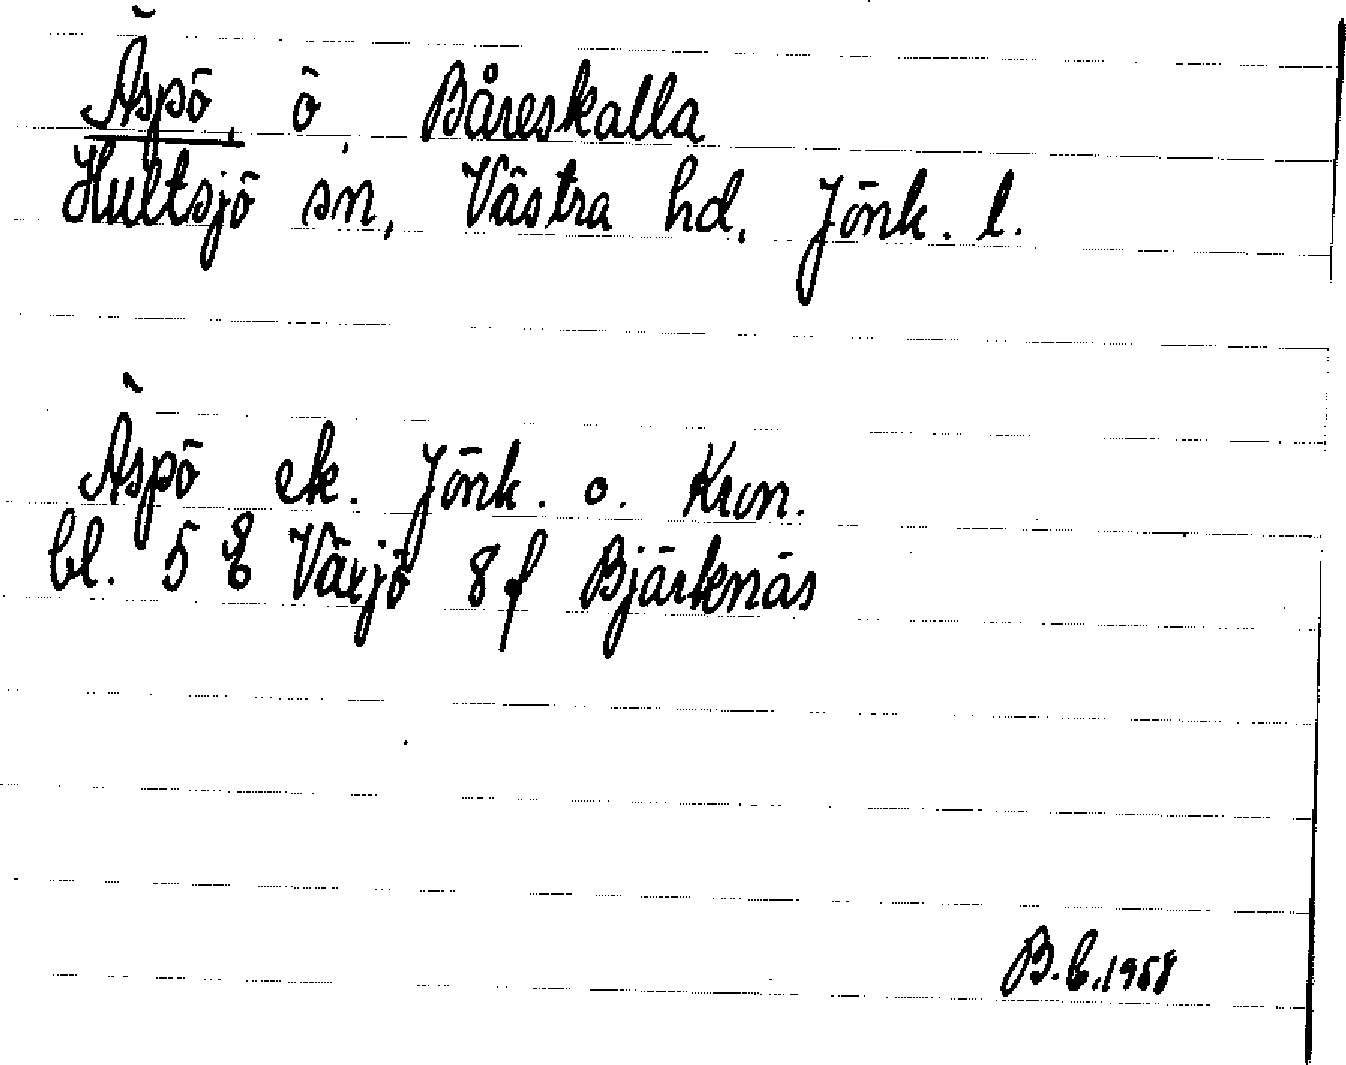 Äspö, ö, Båreskalla
Hultsjö sn, Västra hd, Jönk. l.
Äspö ek. Jönk. o. Kron.
bl. 5 E Växjö 8 f Bjärknäs
B. L. 1958